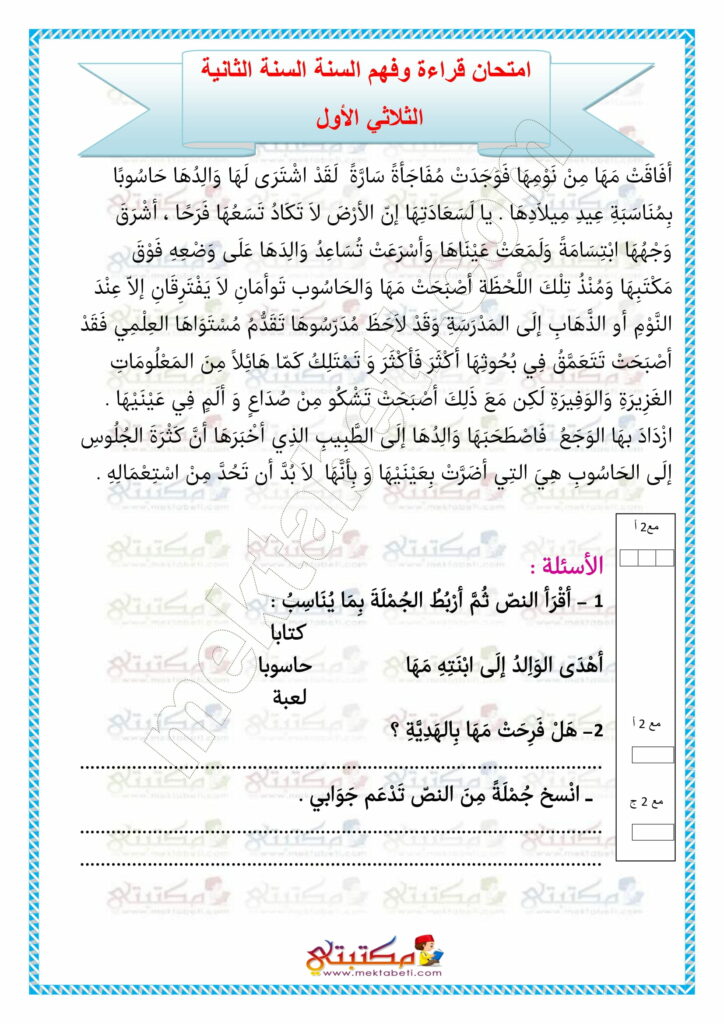 امتحان قراءة وفهم السنة السنة الثانية
الثلاثي الأول
أفَاقَتْ مَهَا مِنْ نَوْمِهَا فَوَجَدَتْ مُفَاجَأةً سَارَّةً لَقَدْ اشْتَرَى لَهَا وَالِدُهَا حَاسُوبًا
بِمُنَاسَبَةِ عِيدِ مِيلاَدِهَا . يا لَسَعَادَتِهَا إنّ الأرْضَ لاَ تَكَادُ تَسَعُهَا فَرَحًا ، أشْرَقَ
وَجْهُهَا ابْتِسَامَةً وَلَمَعَتْ عَيْنَاهَا وَأسْرَعَتْ تُسَاعِدُ وَالِدَهَا عَلَى وَضْعِهِ فَوْقَ
مَكْتَبِهَا وَمُنْذُ تِلْكَ اللَّحْظَة أصْبَحَتْ مَهَا وَالحَاسُوب تَوأمَانِ لاَ يَفْتَرِقَانِ إلاّ عِنْدَ
النَّوْمِ أو الذَّهَابِ إلَى المَدْرَسَةِ وَقَدْ لاَحَظَ مُدَرِّسُوهَا تَقَدُّمُ مُسْتَوَاهَا العِلْمِي فَقَدْ
أصْبَحَتْ تَتَعَمَّقُ فِي بُحُوثِهَا أكْثَرَ فَأكْثَرَ وَ تَمْتَلِكُ كَمّا هَائِلاً مِنَ المَعْلُومَاتِ
الغَزِيرَةِ وَالوَفِيرَةِ لَكِن مَعَ ذَلِكَ أصْبَحَتْ تَشْكُو مِنْ صُدَاعٍ وَ ألَمٍ فِي عَيْنَيْهَا .
ازْدَادَ بهَا الوَجَعُ فَاصْطَحَبَهَا وَالِدُهَا إلَى الطَّبِيبِ الذِي أخْبَرَهَا أنَّ كَثْرَةَ الجُلُوسِ
إلَى الحَاسُوبِ هِيَ التِي أضَرَّتْ بِعَيْنَيْهَا وَ بِأنَّهَا لاَ بُدَّ أن تَحُدَّ مِنْ اسْتِعْمَالِهِ .
مع2 أ
الأسئلة :
1 – أقْرَأ النصّ ثُمَّ أرْبُطُ الجُمْلَةَ بِمَا يُنَاسِبُ :
كتابا
أهْدَى الوَالِدُ إلَى ابْنَتِهِ مَهَا حاسوبا
لعبة
مع 2 أ
2– هَلْ فَرِحَتْ مَهَا بِالهَدِيَّةِ ؟
..........................................................................
مع 2 ج
ـ انْسخ جُمْلَةً مِنَ النصّ تَدْعَم جَوَابي .
..........................................................................
..........................................................................
مكتبتي
www.mektabeti.com
mektabeti.com